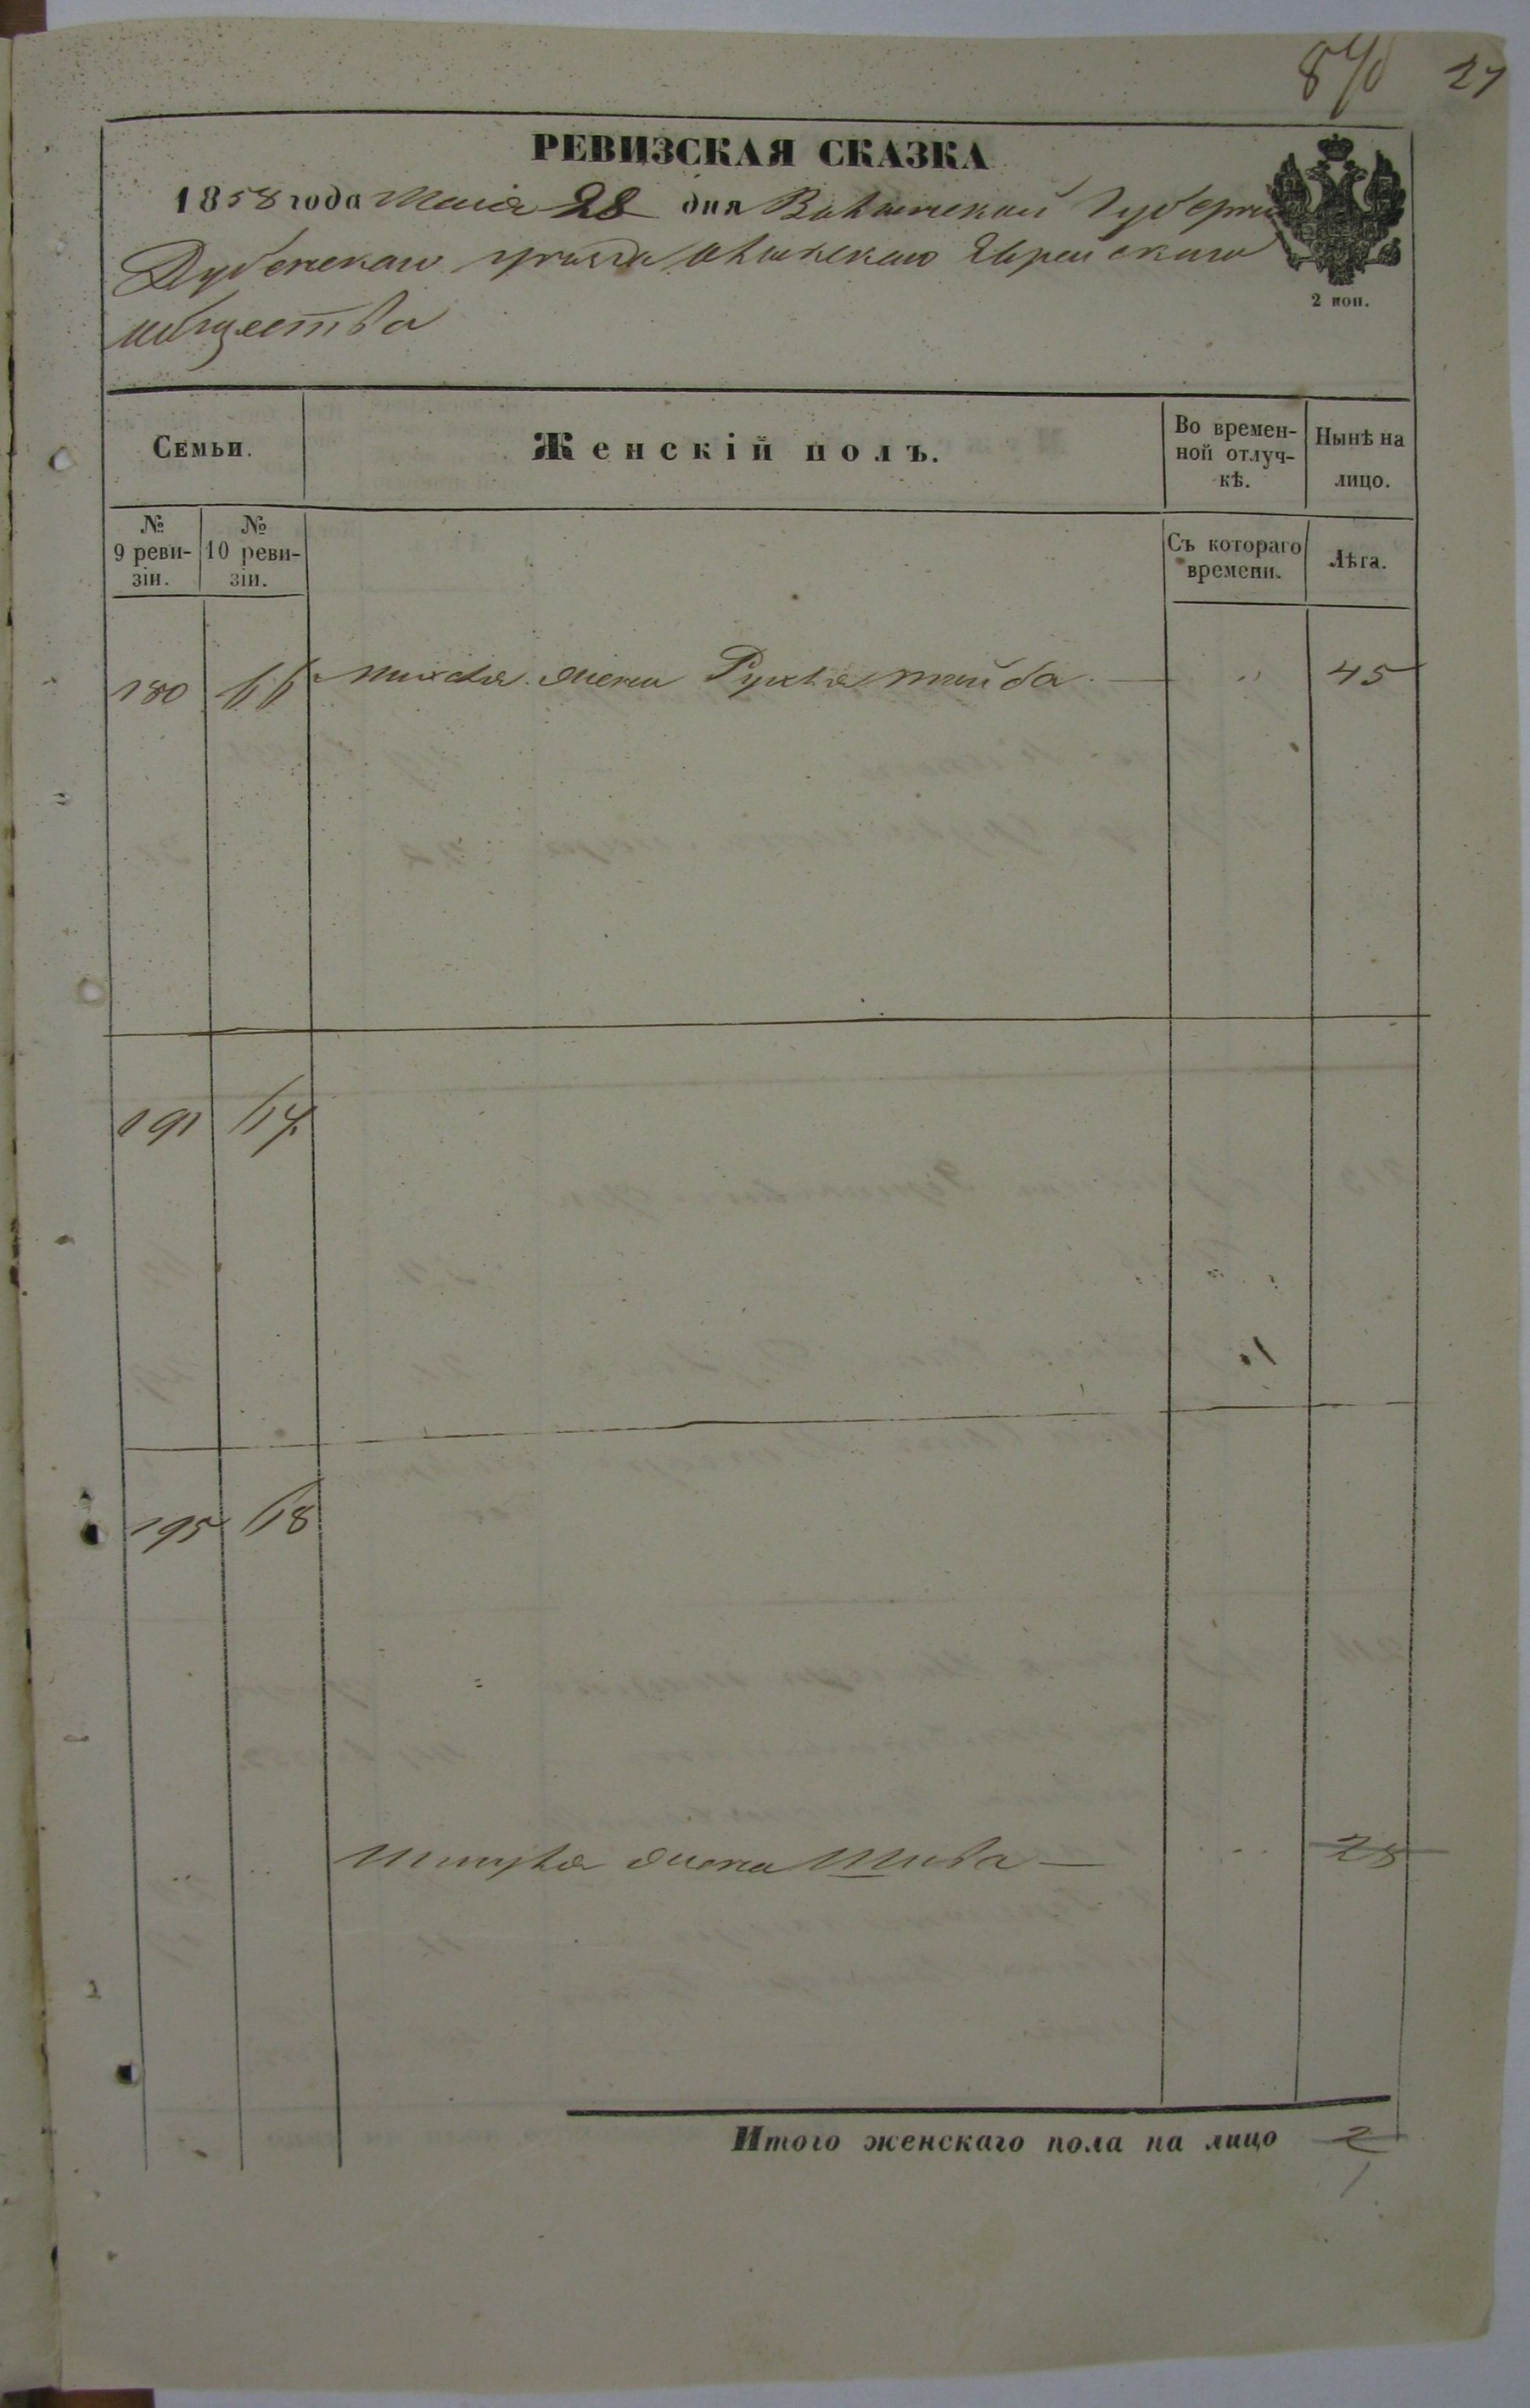 27
РЕВИЗСКАЯ СКАЗКА
1858 года Маія 28 дня Волынской Губерніи
Дубенскаго уѣзда Еврейскаго
общества
2 коп.
Семьи.
Женскій полъ.
Во времен-
ной отлуч-
кѣ.
Нынѣ на
лицо.
№
9 реви-
зіи.
№
10 реви-
зіи.
Съ котораго
времени.
Лѣта.
180 жена Рухля тайба — " 45
191 117
195 118
жена Шива — " 28
Итого женскаго пола на лицо 2
1